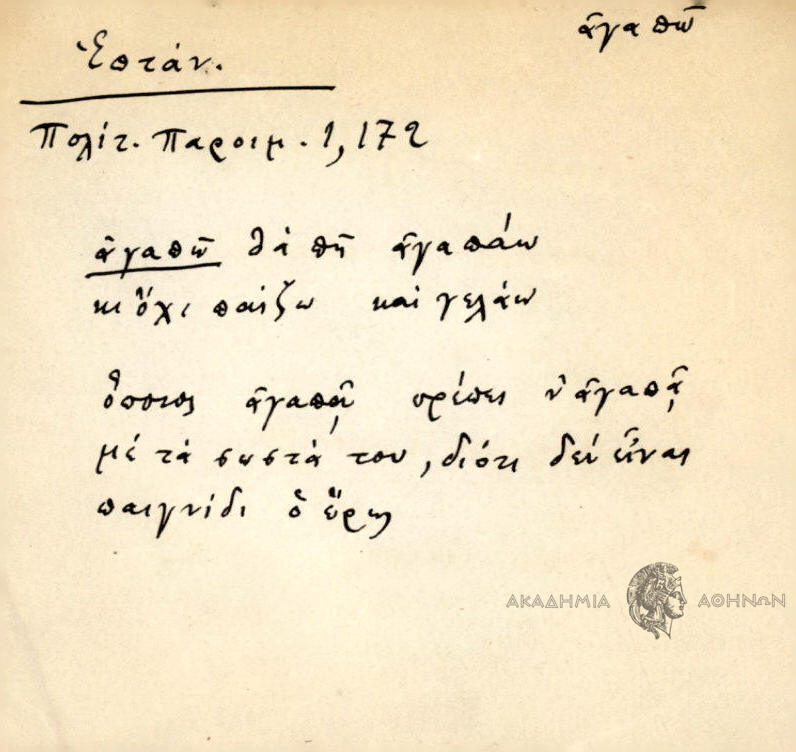 ἀγαπῶ
Ἑπτάν.
Πολίτ. Παροιμ. 1, 172
ἀγαπῶ θὰ πῇ ἀγαπάω
κι ὄχι παίζω καὶ γελάω
ὅποιος ἀγαπᾷ πρέπει ν' ἀγαπᾷ
μὲ τὰ σωστά του, διότι δὲν εἶναι
παιγνίδι ὁ ἔρως
ΑΚΑΔΗΜΙΑ ΑΘΗΝΩΝ